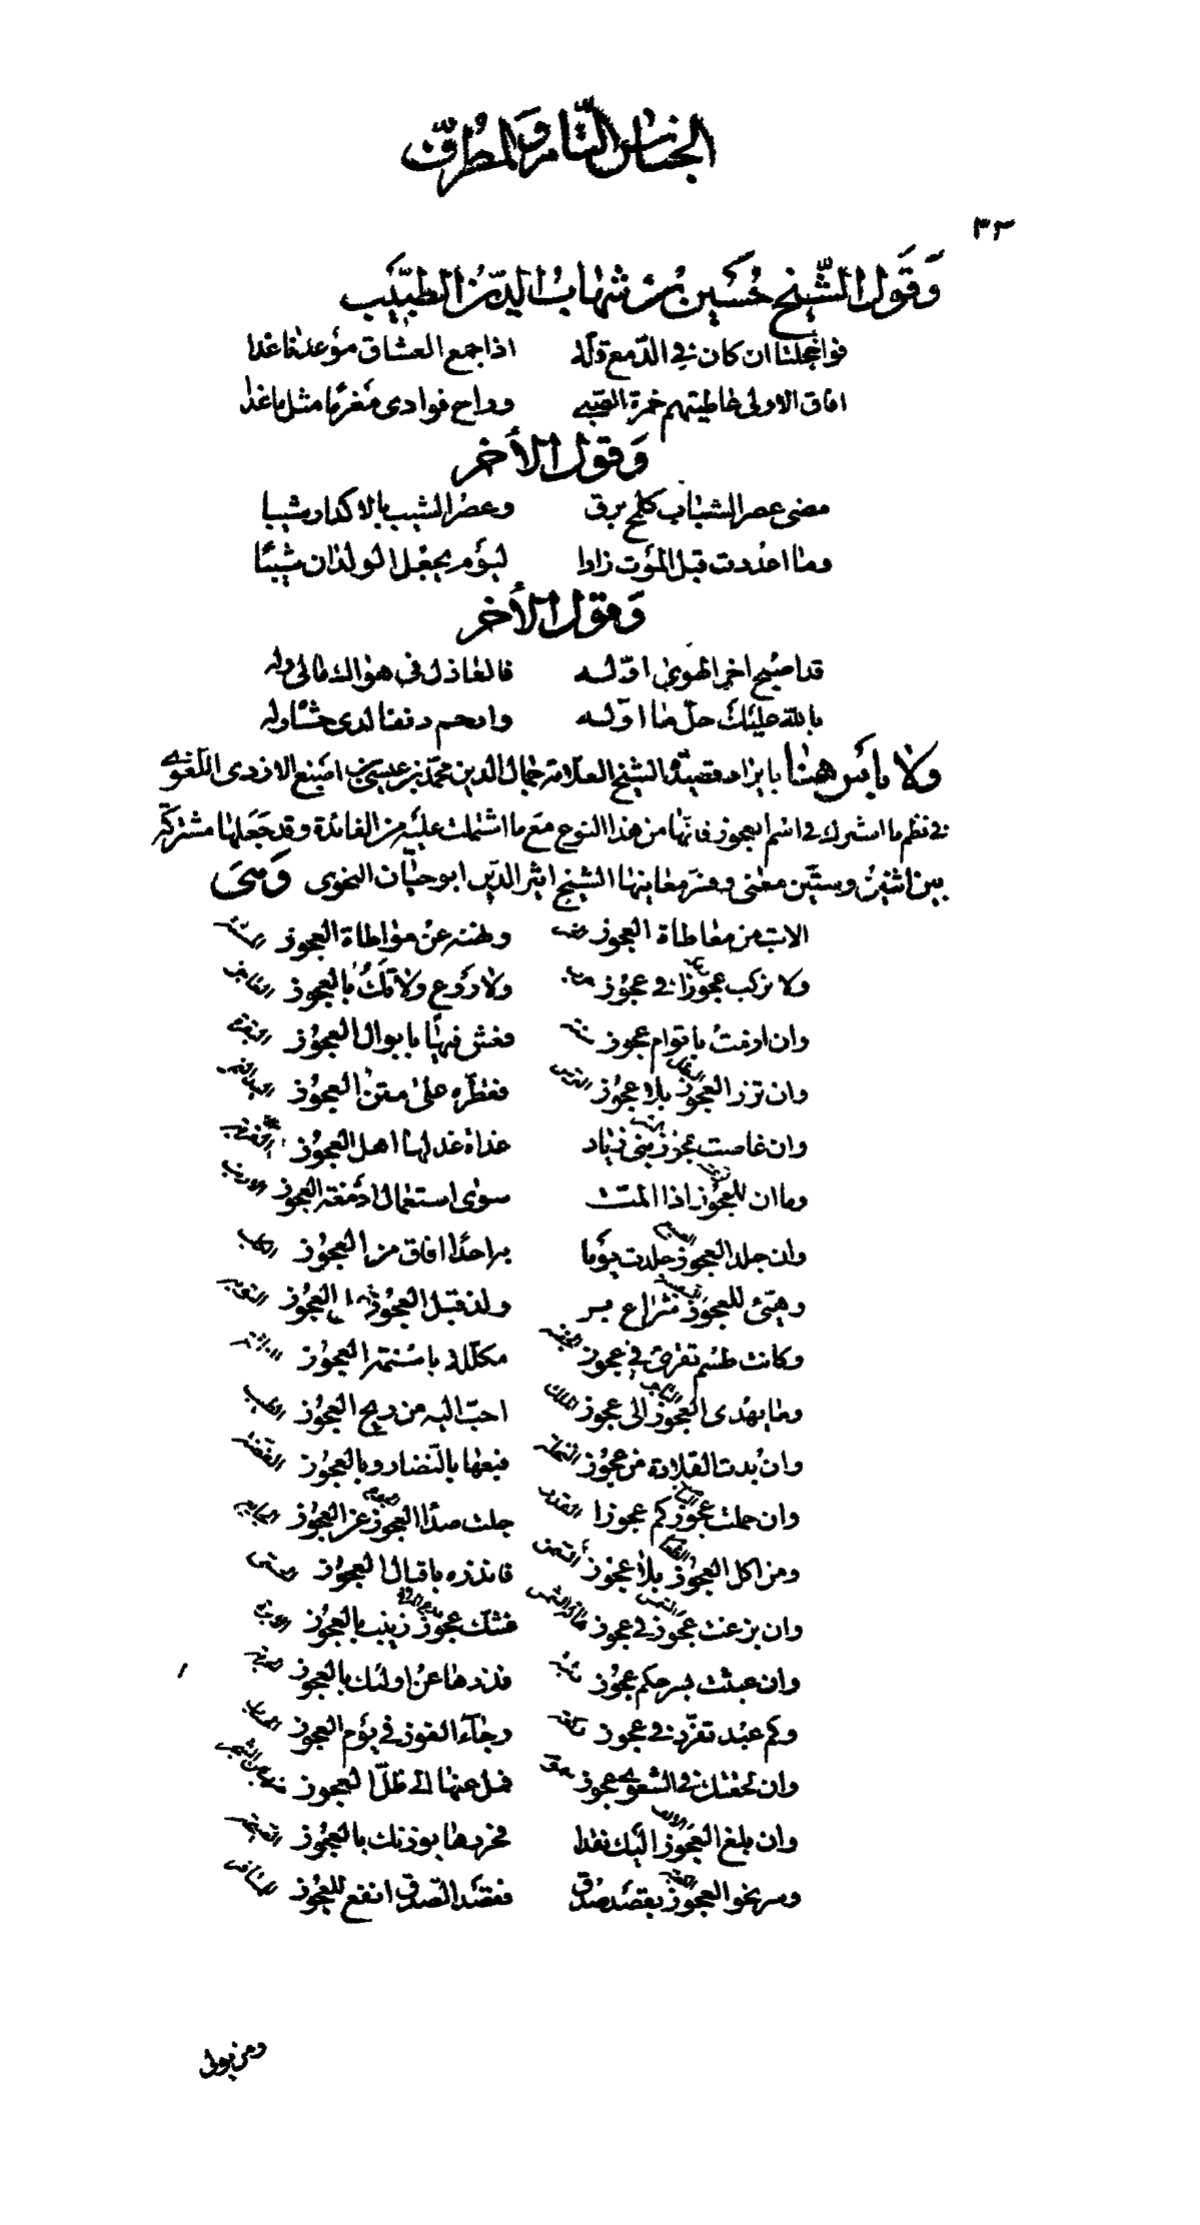 الجناس التام والمطرف
٣٣
وَقَول الشّيخ حُسَين بن شهاب الدّين الطبيب
فواخجلتا ان كان في الدّمع قلّة اذا جمع العشاق موعدنا غدا
افاق الاولى عاطيتهم خمرة الصّبى وراح فوادى مغرما مثل ما غدا
وَقول الأخر
مضى عصر الشباب كلمح برق وعصر الشيب بالاكدار شيبا
وما اعددت قبل الموت زادا ليوم يجعل الولدان شيبا
وَقول الأخر
قد اصبح اخر الهوى اوّله فالعاذل فى هواك مالى وله
بالله عليك خلّ ما اوّله وارحم دنفا لدى حشاه وله
ولا بأس هنا بايراد قصيدة الشيخ العلامة جمال الدين محمّد بن عيسى بن اصبغ الازدى اللغوى
في نظم ما اشترك في اسم العجوز فانها من هذا النوع مع ما اشتملت عليه من الفائدة وقد جعلها مشتركة
بين اثنين وستين معنى وفسّر معانيها الشيخ اثير الدّين ابو حيّان النحوى وَهىَ
الا تب من معاطاة العجوز خمر ونهنه عن مواطاة العجوز المسنّة
ولا تركب عجوزا في عجوز ولا روع ولا تك بالعجوز
وان اوفت باقوام عجوز سنة فعش فيها بابوال العجوز البقرة
وان تزر العجوز بلا عجوز الترس ففطّره على متن العجوز
وان غاصت عجوز بنى زياد غداة غد لها اهل العجوز
وما ان للعجوز اذا المت سوى استعمال ادمغة العجوز الارنب
وان جلد العجوز جلدت يوما براحدا افاق من العجوز الكلب
وهيّئ للعجوز شراع بر ولذ قبل العجوز الى العجوز
وكانت طسم تفرى في عجوز مكلّلة باسنمة العجوز
وما يهدى العجوز الى عجوز الملك احبّ اليه من ريح العجوز الطيب
وان بدت القلادة من عجوز النخلة فبعها بالنّضار وبالعجوز الفضّة
وان حملت عجوز كم عجوزا القدر جلت صدا العجوز عن العجوز
ومن اكل العجوز بلا عجوز السمن فانذره باقبال العجوز
وان بزغت عجوز في عجوز دارة الشمس غشتك عجوز زينب بالعجوز
وان عبثت بسرحكم عجوز فذدها عن اولئك بالعجوز
وكم عبد تفرّد في عجوز وجاء الفوز في يوم العجوز
وان لحقتك في الشعرى عجوز فمل عنها الى ظلّ العجوز
وان بلغ العجوز اليك نقدا فخردها بوزنك بالعجوز الصنجة
وسر نحو العجوز بقصد صدق فقصد الصدق انفع للعجوز المسافر
ومن يولى